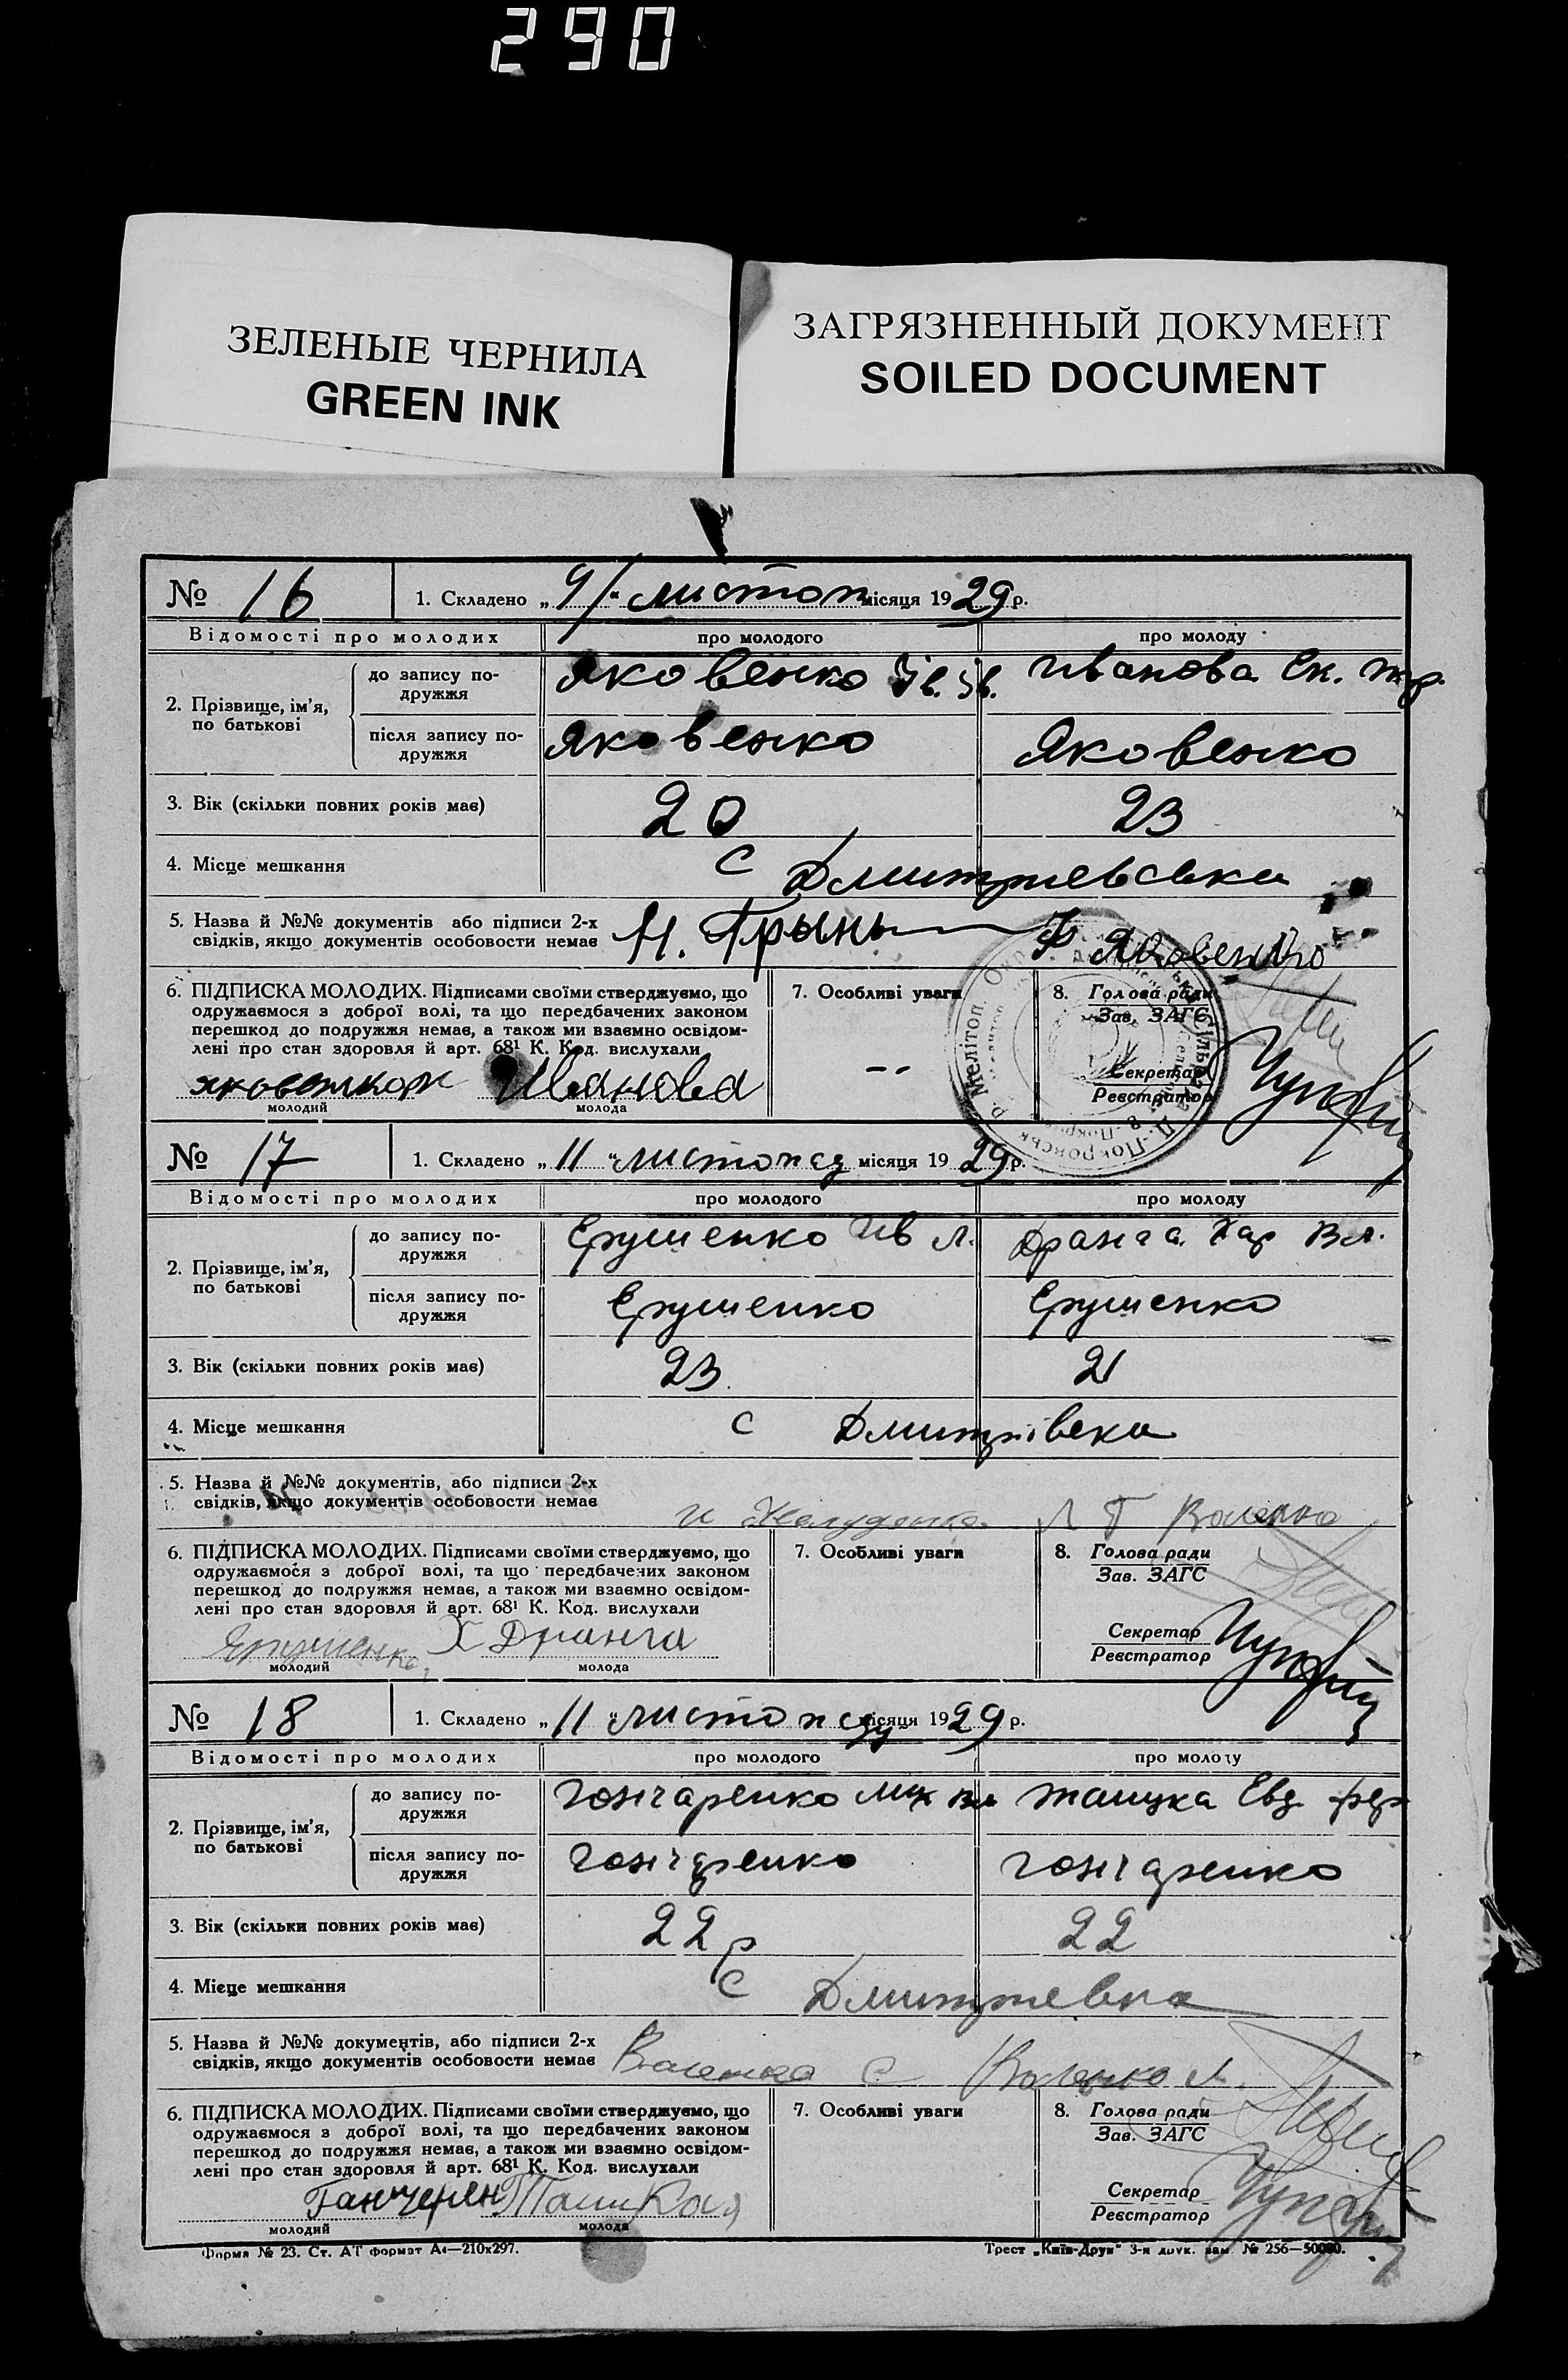 290
ЗЕЛЕНЫЕ ЧЕРНИЛА
GREEN INK
ЗАГРЯЗНЕННЫЙ ДОКУМЕНТ
SOILED DOCUMENT
№ 16 1. Складено „9/“ листоп місяця 1929 р.
Відомості про молодих про молодого про молоду
2. Прізвище, ім'я, по батькові
до запису подружжя Яковенко Ів. Ів. Иванова Ек.
після запису подружжя Яковенко Яковенко
3. Вік (скільки повних років має) 20 23
4. Місце мешкання С Дмитриевська
5. Назва й №№ документів або підписи 2-х
свідків, якщо документів особовости немає Н. Грынь Яковенко
6. ПІДПИСКА МОЛОДИХ. Підписами своїми стверджуємо, що
одружаємося з доброї волі, та що передбачених законом
перешкод до подружжя немає, а також ми взаємно освідом-
лені про стан здоровля й арт. 68¹ К. Код. вислухали
Иванова
молодий молода
7. Особливі уваги
--
8. Голова ради
Зав. ЗАГС
Секретар
Реєстратор
№ 17 1. Складено „11“ листопад місяця 1929 р.
Відомості про молодих про молодого про молоду
2. Прізвище, ім'я, по батькові
до запису подружжя Ерушенко Ив Л. Дранга Хар Вл.
після запису подружжя Ерушенко Ерушенко
3. Вік (скільки повних років має) 23 21
4. Місце мешкання С Дмитрівка
5. Назва й №№ документів, або підписи 2-х
свідків, якщо документів особовости немає
6. ПІДПИСКА МОЛОДИХ. Підписами своїми стверджуємо, що
одружаємося з доброї волі, та що передбачених законом
перешкод до подружжя немає, а також ми взаємно освідом-
лені про стан здоровля й арт. 68¹ К. Код. вислухали
Х Дранга
молодий молода
7. Особливі уваги
8. Голова ради
Зав. ЗАГС
Секретар
Реєстратор
№ 18 1. Складено „11“ листопаду місяця 1929 р.
Відомості про молодих про молодого про молоду
2. Прізвище, ім'я, по батькові
до запису подружжя Гончаренко Мих Вл Евд.
після запису подружжя Гончаренко Гончаренко
3. Вік (скільки повних років має) 22 р 22
4. Місце мешкання С Дмитриевка
5. Назва й №№ документів, або підписи 2-х
свідків, якщо документів особовости немає
6. ПІДПИСКА МОЛОДИХ. Підписами своїми стверджуємо, що
одружаємося з доброї волі, та що передбачених законом
перешкод до подружжя немає, а також ми взаємно освідом-
лені про стан здоровля й арт. 68¹ К. Код. вислухали
молодий молода
7. Особливі уваги
8. Голова ради
Зав. ЗАГС
Секретар
Реєстратор
Форма № 23. Ст. АТ формат А4—210x297.
Трест „Київ-Друк“ 3-я друк. зам. № 256—50000.